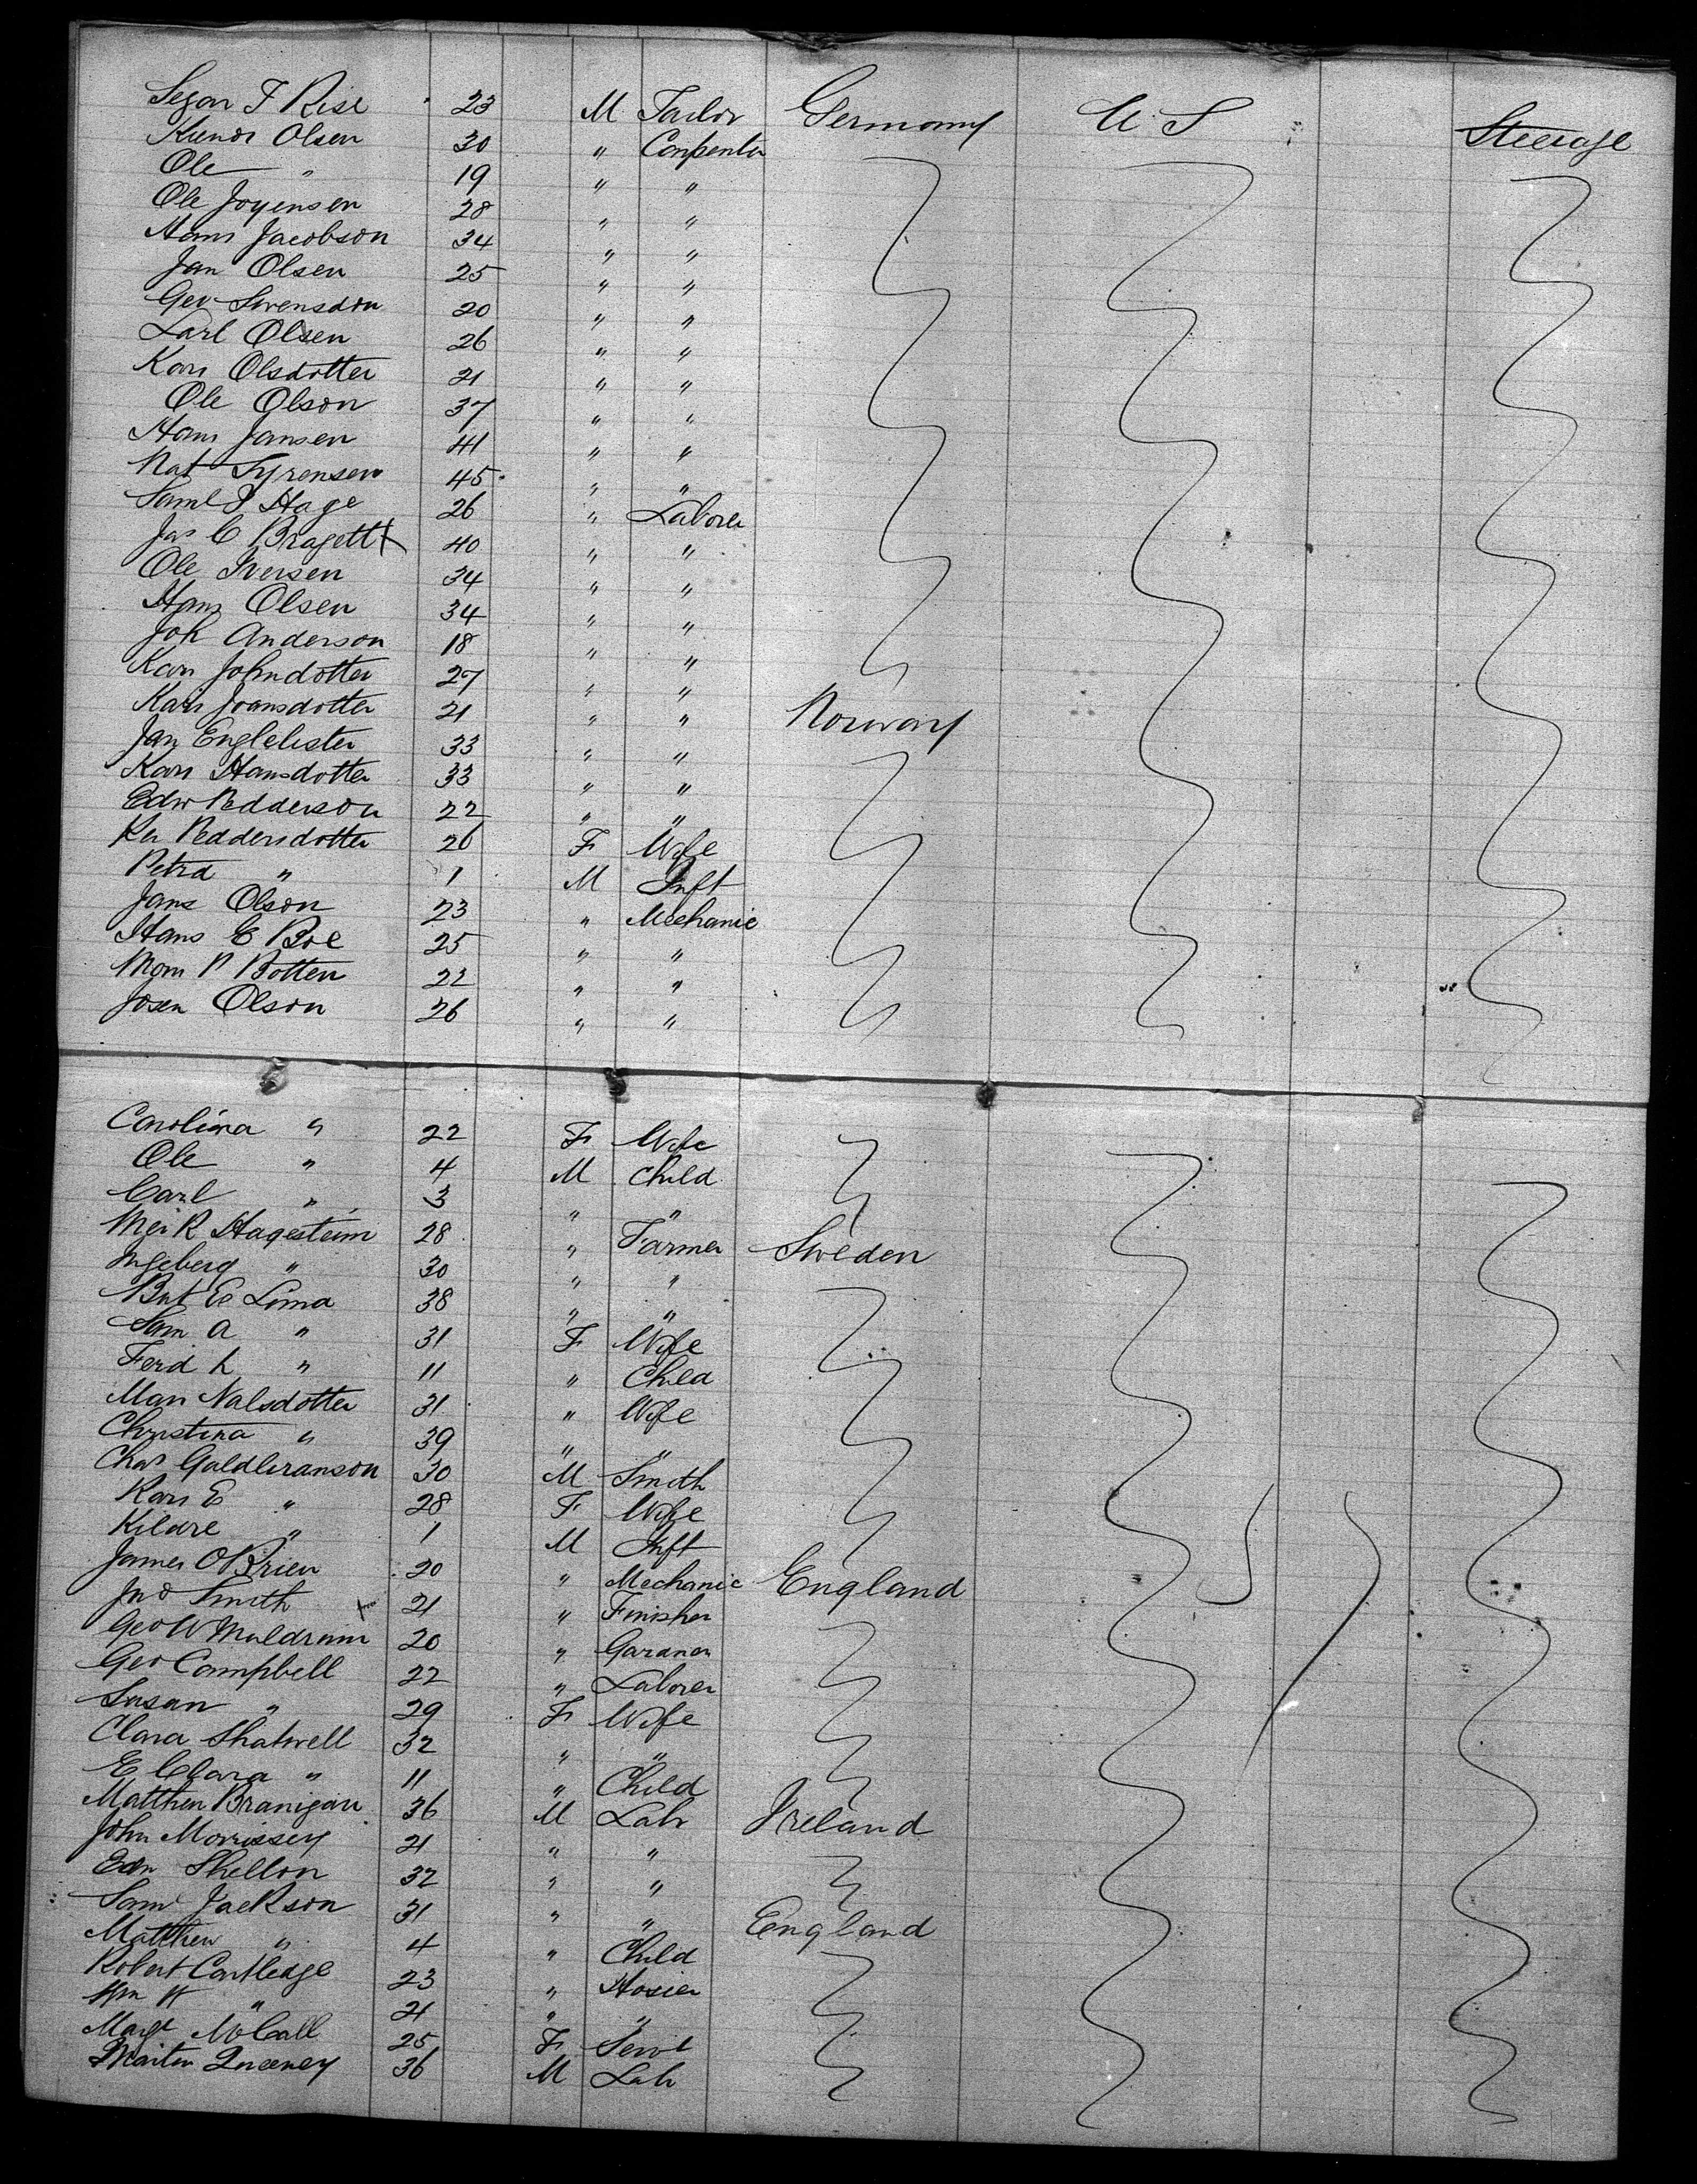 Segar T Rise 23 M Tailor Germany U S Steerage
Kunor Olsen 30 " Carpenter
Ole " 19 " "
Ole Joyensen 28 " "
Hans Jacobson 34 " "
Jan Olsen 25 " "
Geo Swensdon 20 " "
Carl Olsen 26 " "
Kari Olsdotter 21 " "
Ole Olson 37 " "
Hans Jansen 41 " "
Nat Syrensen 45 " "
Saml J Hage 26 " Laborer
Jas C Bragett 40 " "
Ole Iversen 34 " "
Hans Olsen 34 " "
Joh Anderson 18 " "
Kari Johndotter 27 " "
Kari Joansdotter 21 " " Norway
Jan Englelister 33 " "
Kari Hansdotter 33 " "
Edw Pedderson 22 " "
Ker Peddersdotter 26 F Wife
Petra " 1 M Inft
Jans Olson 23 " Mechanic
Hans E Boe 25 " "
Mom P Botten 22 " "
Josen Olson 26 " "
Carolina " 22 F Wife
Ole " 4 M Child
Carl " 3 " "
R Hagesteim 28 " Farmer Sweden
Ingeberg " 30 " "
Bnt E Lima 38 " "
Sam A " 31 F Wife
Ferd L " 11 " Child
Mari Nalsdotter 31 " Wife
Christina " 39 " "
Chas Galdbranson 30 M Smith
Kari E " 28 F Wife
Kildre " 1 M Inft
James OBrien 20 " Mechanic England
Jno Smith 21 " Finisher
Geo W Muldrum 20 " Gardner
Geo Campbell 22 " Laborer
Susan " 29 F Wife
Clara Shatwell 32 " "
E Clara " 11 " Child
Matthew Branigan 36 M Labr Ireland
John Morrissey 21 " "
Edw Shellon 32 " "
Saml Jackson 31 " " England
Matthew " 4 " Child
Robert Cartledge 23 " Hosier
Wm H " 21 " "
Margt McCall 25 F Servt
Martin Queeney 36 M Labr